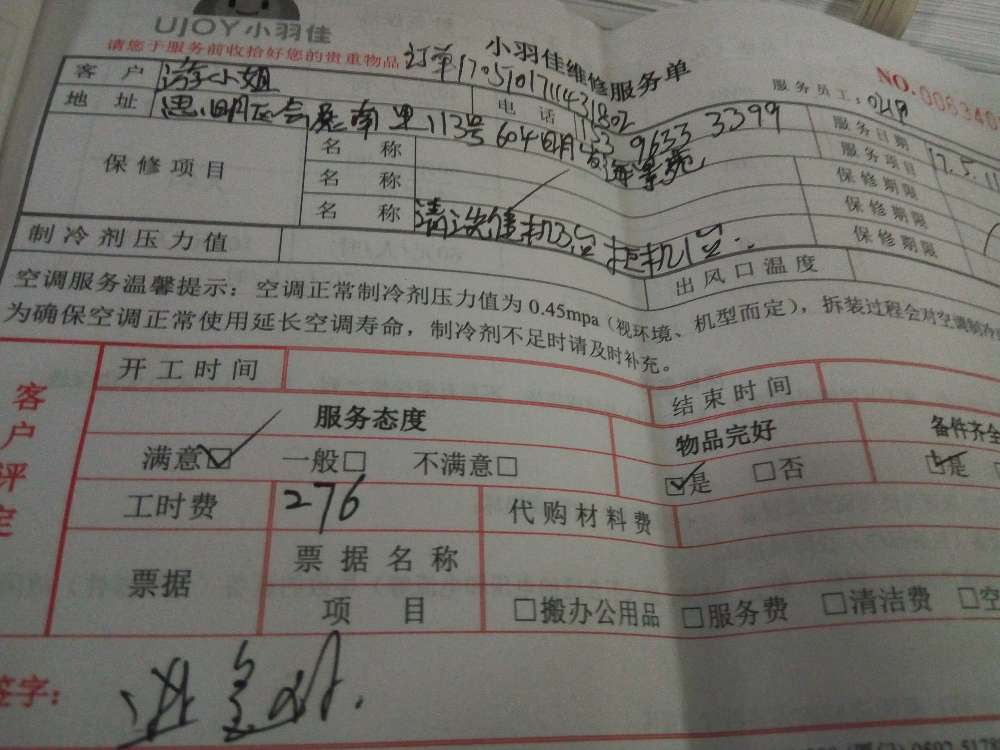 UJOY小羽佳
请您于服务前收拾好您的贵重物品
小羽佳维修服务单
NO.
订单17051017114431802
服务员工：
客户 游小姐 电话 9633 3399 服务日期 17.5.11
地址 思明区 南里113号604 服务项目
保修项目 名称 保修期限
名称 保修期限
名称 请洗 机3台 柜机1台 保修期限
制冷剂压力值 出风口温度
空调服务温馨提示：空调正常制冷剂压力值为 0.45mpa（视环境、机型而定），拆装过程会对空调制冷
为确保空调正常使用延长空调寿命，制冷剂不足时请及时补充。
客户评定
开工时间 结束时间
服务态度 物品完好 备件齐全
满意☑ 一般□ 不满意□ ☑是 □否 ☑是
工时费 276 代购材料费
票据 票据名称
项目 □搬办公用品 □服务费 □清洁费 □空
签字：